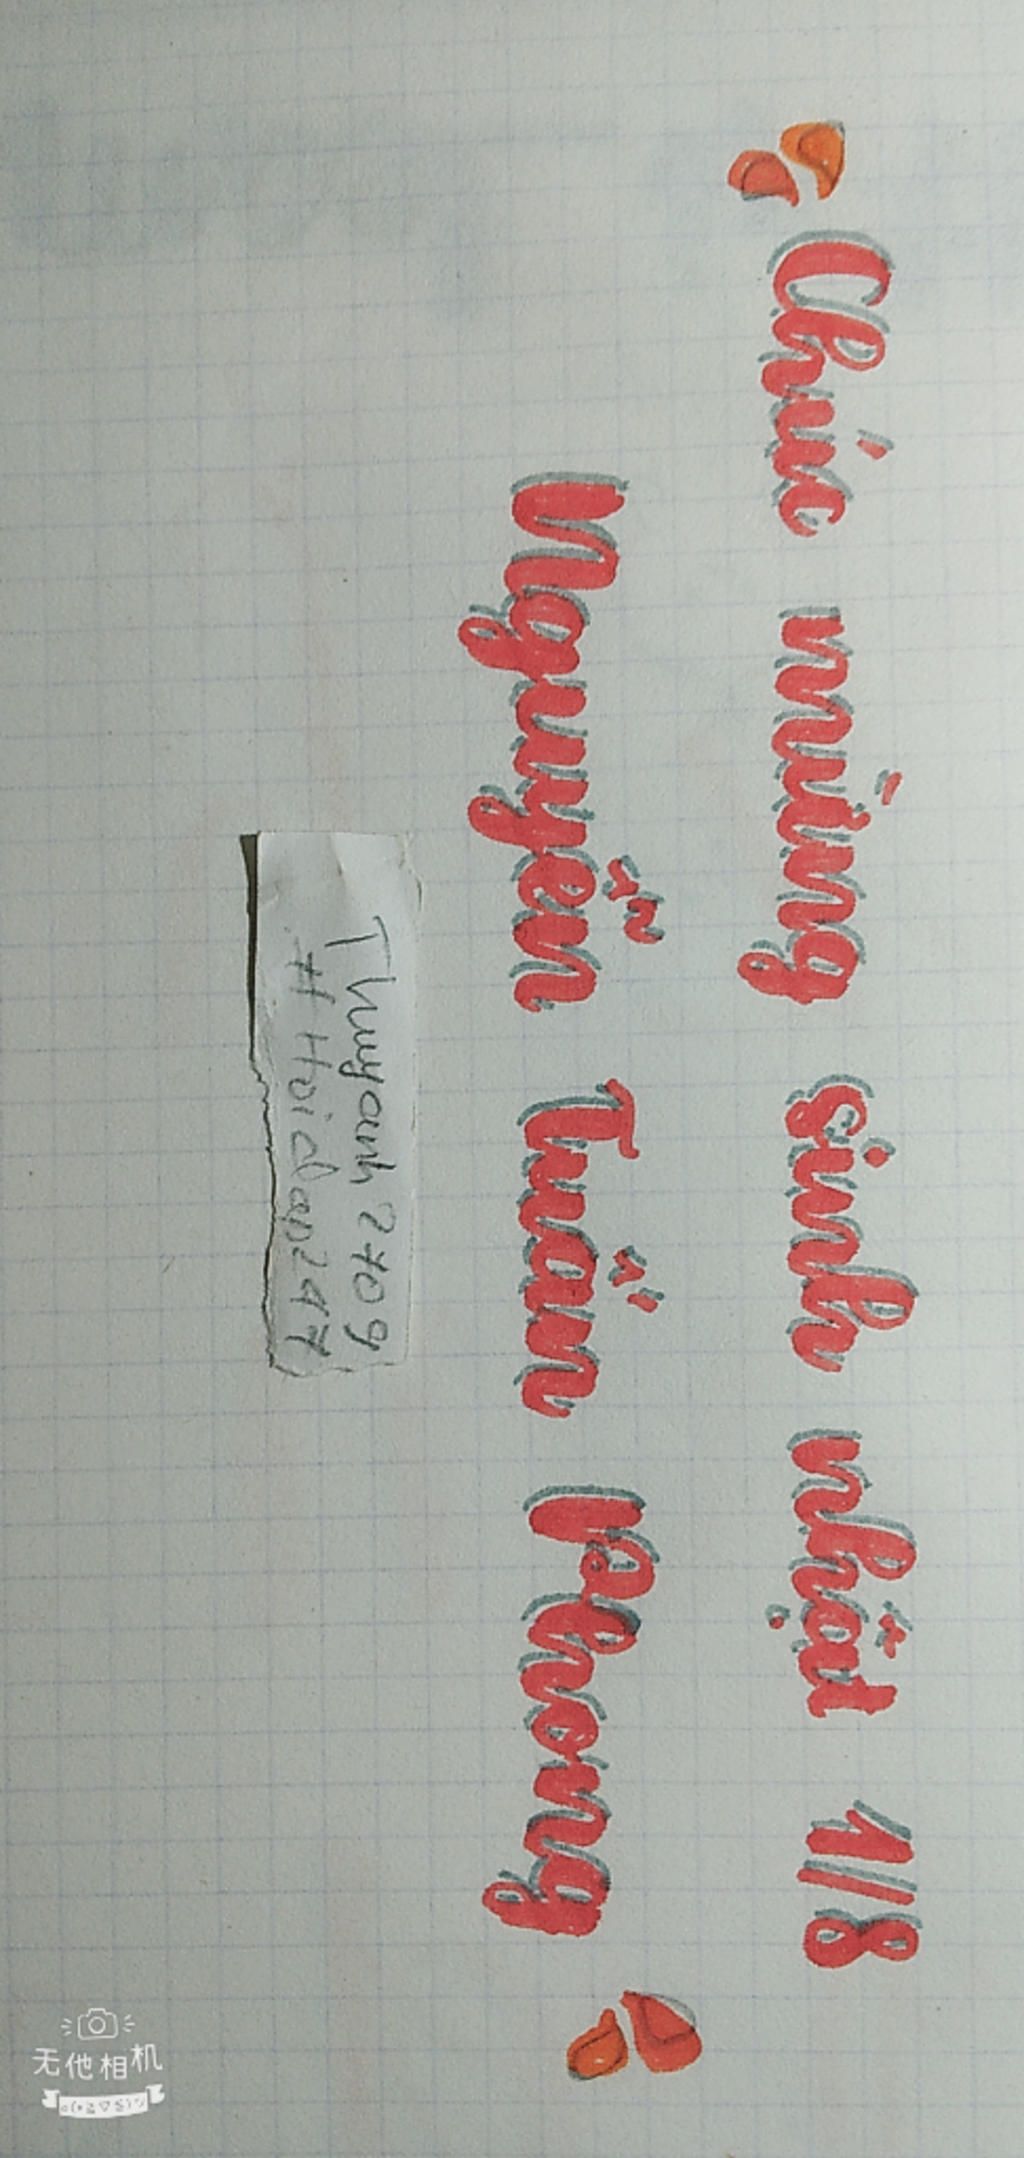 Chúc mừng sinh nhật 1/8
Nguyễn Tuấn Phong
Thuyanh2709
# Hoidap247
无他相机